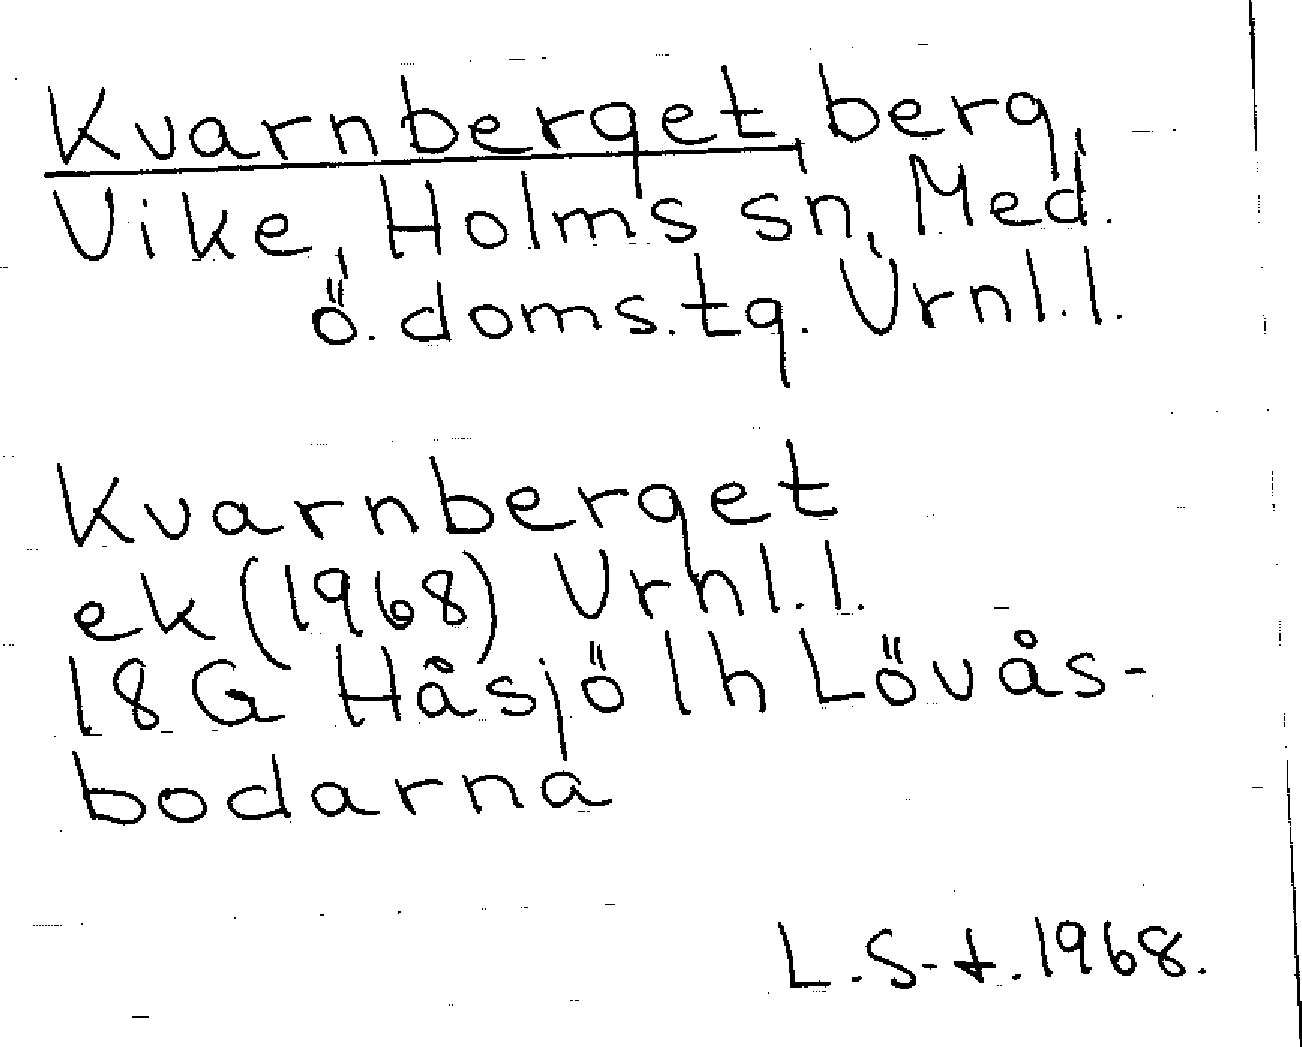 Kvarnberget, berg,
Vike, Holms sn, Med.
ö. doms.tg. Vrnl.l.
Kvarnberget
ek (1968) Vrnl.l.
18G Håsjö 1h Lövås-
bodarna
L.S-t. 1968.